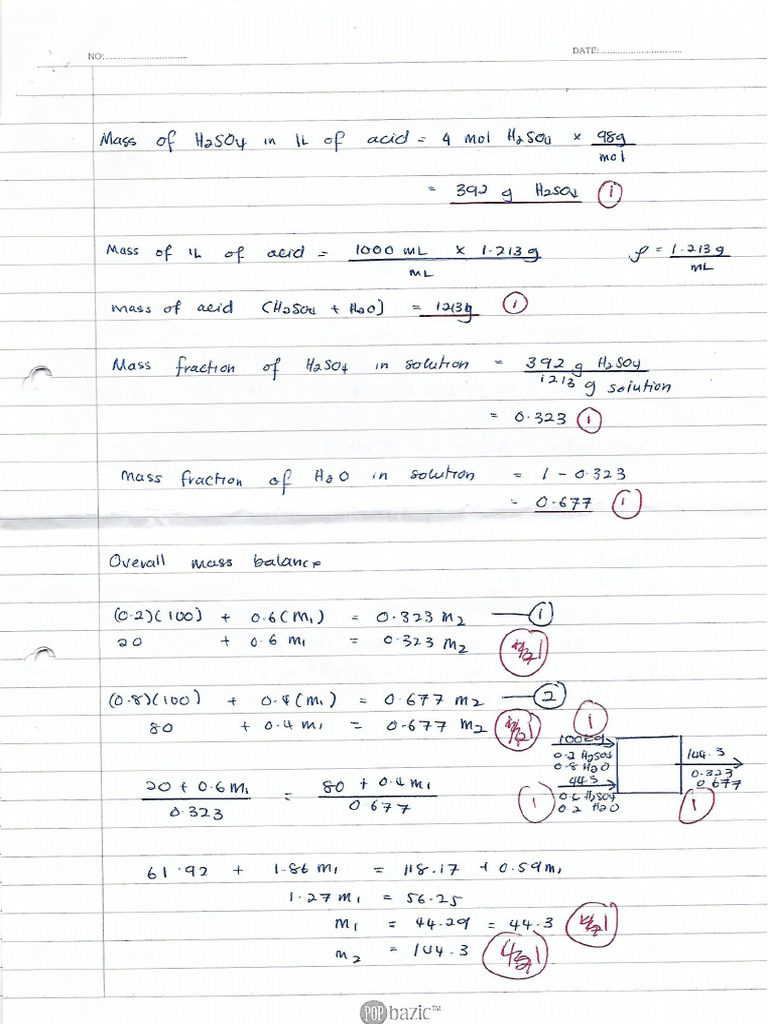 NO:
DATE:
Mass of H2SO4 in 1L of acid = 4 mol H2SO4 × 98g
mol
= 392 g H2SO4 1
Mass of 1L of acid = 1000 mL × 1.213 g
mL
ρ = 1.213 g
mL
Mass of acid (H2SO4 + H2O) = 1213g 1
Mass fraction of H2SO4 in solution = 392 g H2SO4
1213 g solution
= 0.323 1
Mass fraction of H2O in solution = 1 - 0.323
= 0.677 1
Overall mass balance
(0.2)(100) + 0.6(M1) = 0.323 M2 — 1
20 + 0.6 M1 = 0.323 M2 1
(0.8)(100) + 0.4(M1) = 0.677 M2 — 2
80 + 0.4 M1 = 0.677 M2 1
1
100kg
0.2 H2SO4
0.8 H2O
44.3
0.6 H2SO4
0.2 H2O
1
144.3
0.323
0.677
1
20 + 0.6 M1 = 80 + 0.4 M1
0.323 0.677
61.92 + 1.86 M1 = 118.17 + 0.59 M1
1.27 M1 = 56.25
M1 = 44.29 = 44.3 1
M2 = 144.3 1
POP bazic™